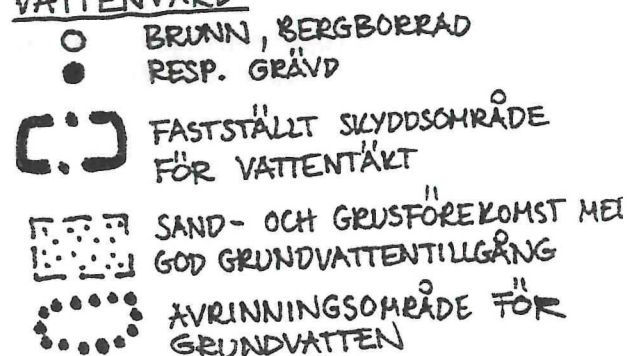 VATTENVÅRD
BRUNN, BERGBORRAD
RESP. GRÄVD
FASTSTÄLLT SKYDDSOMRÅDE
FÖR VATTENTÄKT
SAND- OCH GRUSFÖREKOMST MED
GOD GRUNDVATTENTILLGÅNG
AVRINNINGSOMRÅDE FÖR
GRUNDVATTEN